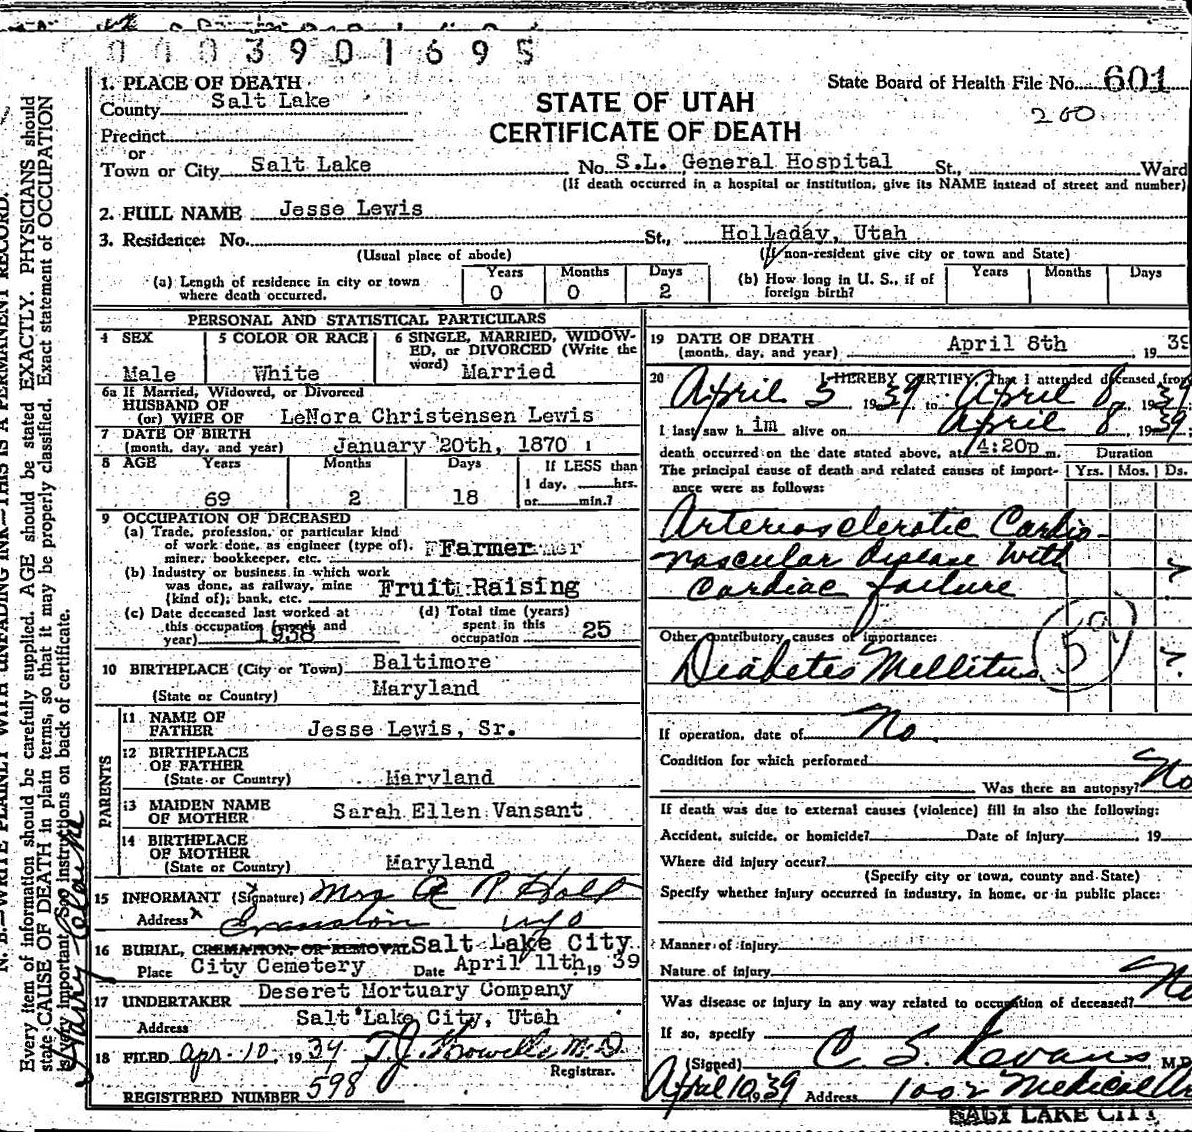 0003901695
1. PLACE OF DEATH
State Board of Health File No. 601
County Salt Lake
STATE OF UTAH
200
Precinct
CERTIFICATE OF DEATH
or
Town or City Salt Lake No. S.L. General Hospital St., Ward
(If death occurred in a hospital or institution, give its NAME instead of street and number)
2. FULL NAME Jesse Lewis
3. Residence: No. St., Holladay, Utah
(Usual place of abode) (If non-resident give city or town and State)
(a) Length of residence in city or town where death occurred. Years 0 Months 0 Days 2
(b) How long in U. S., if of foreign birth? Years Months Days
PERSONAL AND STATISTICAL PARTICULARS
4 SEX Male
5 COLOR OR RACE White
6 SINGLE, MARRIED, WIDOW-
ED, or DIVORCED (Write the
word) Married
6a If Married, Widowed, or Divorced
HUSBAND OF
(or) WIFE OF LeNora Christensen Lewis
7 DATE OF BIRTH
(month, day, and year) January 20th, 1870
8 AGE Years 69 Months 2 Days 18
If LESS than
1 day, hrs.
or min.?
9 OCCUPATION OF DECEASED
(a) Trade, profession, or particular kind
of work done, as engineer (type of), Farmer
miner, bookkeeper, etc.
(b) Industry or business in which work
was done, as railway, mine Fruit Raising
(kind of); bank, etc.
(c) Date deceased last worked at
this occupation (month and
year) 1938
(d) Total time (years)
spent in this
occupation 25
10 BIRTHPLACE (City or Town) Baltimore
(State or Country) Maryland
PARENTS
11 NAME OF
FATHER Jesse Lewis, Sr.
12 BIRTHPLACE
OF FATHER
(State or Country) Maryland
13 MAIDEN NAME
OF MOTHER Sarah Ellen Vansant
14 BIRTHPLACE
OF MOTHER
(State or Country) Maryland
15 INFORMANT (Signature) Mrs
Address Evanston Wyo
16 BURIAL, CREMATION, OR REMOVAL Salt Lake City
Place City Cemetery Date April 11th, 19 39
17 UNDERTAKER Deseret Mortuary Company
Address Salt Lake City, Utah
18 FILED Apr. 10, 1939 T.J. Howells M.D.
Registrar.
REGISTERED NUMBER 598
19 DATE OF DEATH
(month, day, and year) April 8th 19 39
20 I HEREBY CERTIFY, That I attended deceased from
April 5 1939 to April 8, 1939
I last saw him alive on April 8, 1939
death occurred on the date stated above, at 4:20p m.
Duration
The principal cause of death and related causes of import-
ance were as follows:
Yrs. Mos. Ds.
Arteriosclerotic Cardio-
vascular disease with
cardiac failure ?
Other contributory causes of importance:
Diabetes Mellitus ?
59
If operation, date of No.
Condition for which performed
Was there an autopsy? No
If death was due to external causes (violence) fill in also the following:
Accident, suicide, or homicide? Date of injury 19
Where did injury occur?
(Specify city or town, county and State)
Specify whether injury occurred in industry, in home, or in public place:
Manner of injury
Nature of injury
Was disease or injury in any way related to occupation of deceased? No
If so, specify
(Signed) C. S. M.D.
April 10 1939 Address 1002 Medical
SALT LAKE CITY
N. B.—WRITE PLAINLY WITH UNFADING INK—THIS IS A PERMANENT RECORD.
Every item of information should be carefully supplied. AGE should be stated EXACTLY. PHYSICIANS should
state CAUSE OF DEATH in plain terms, so that it may be properly classified. Exact statement of OCCUPATION
is very important. See instructions on back of certificate.